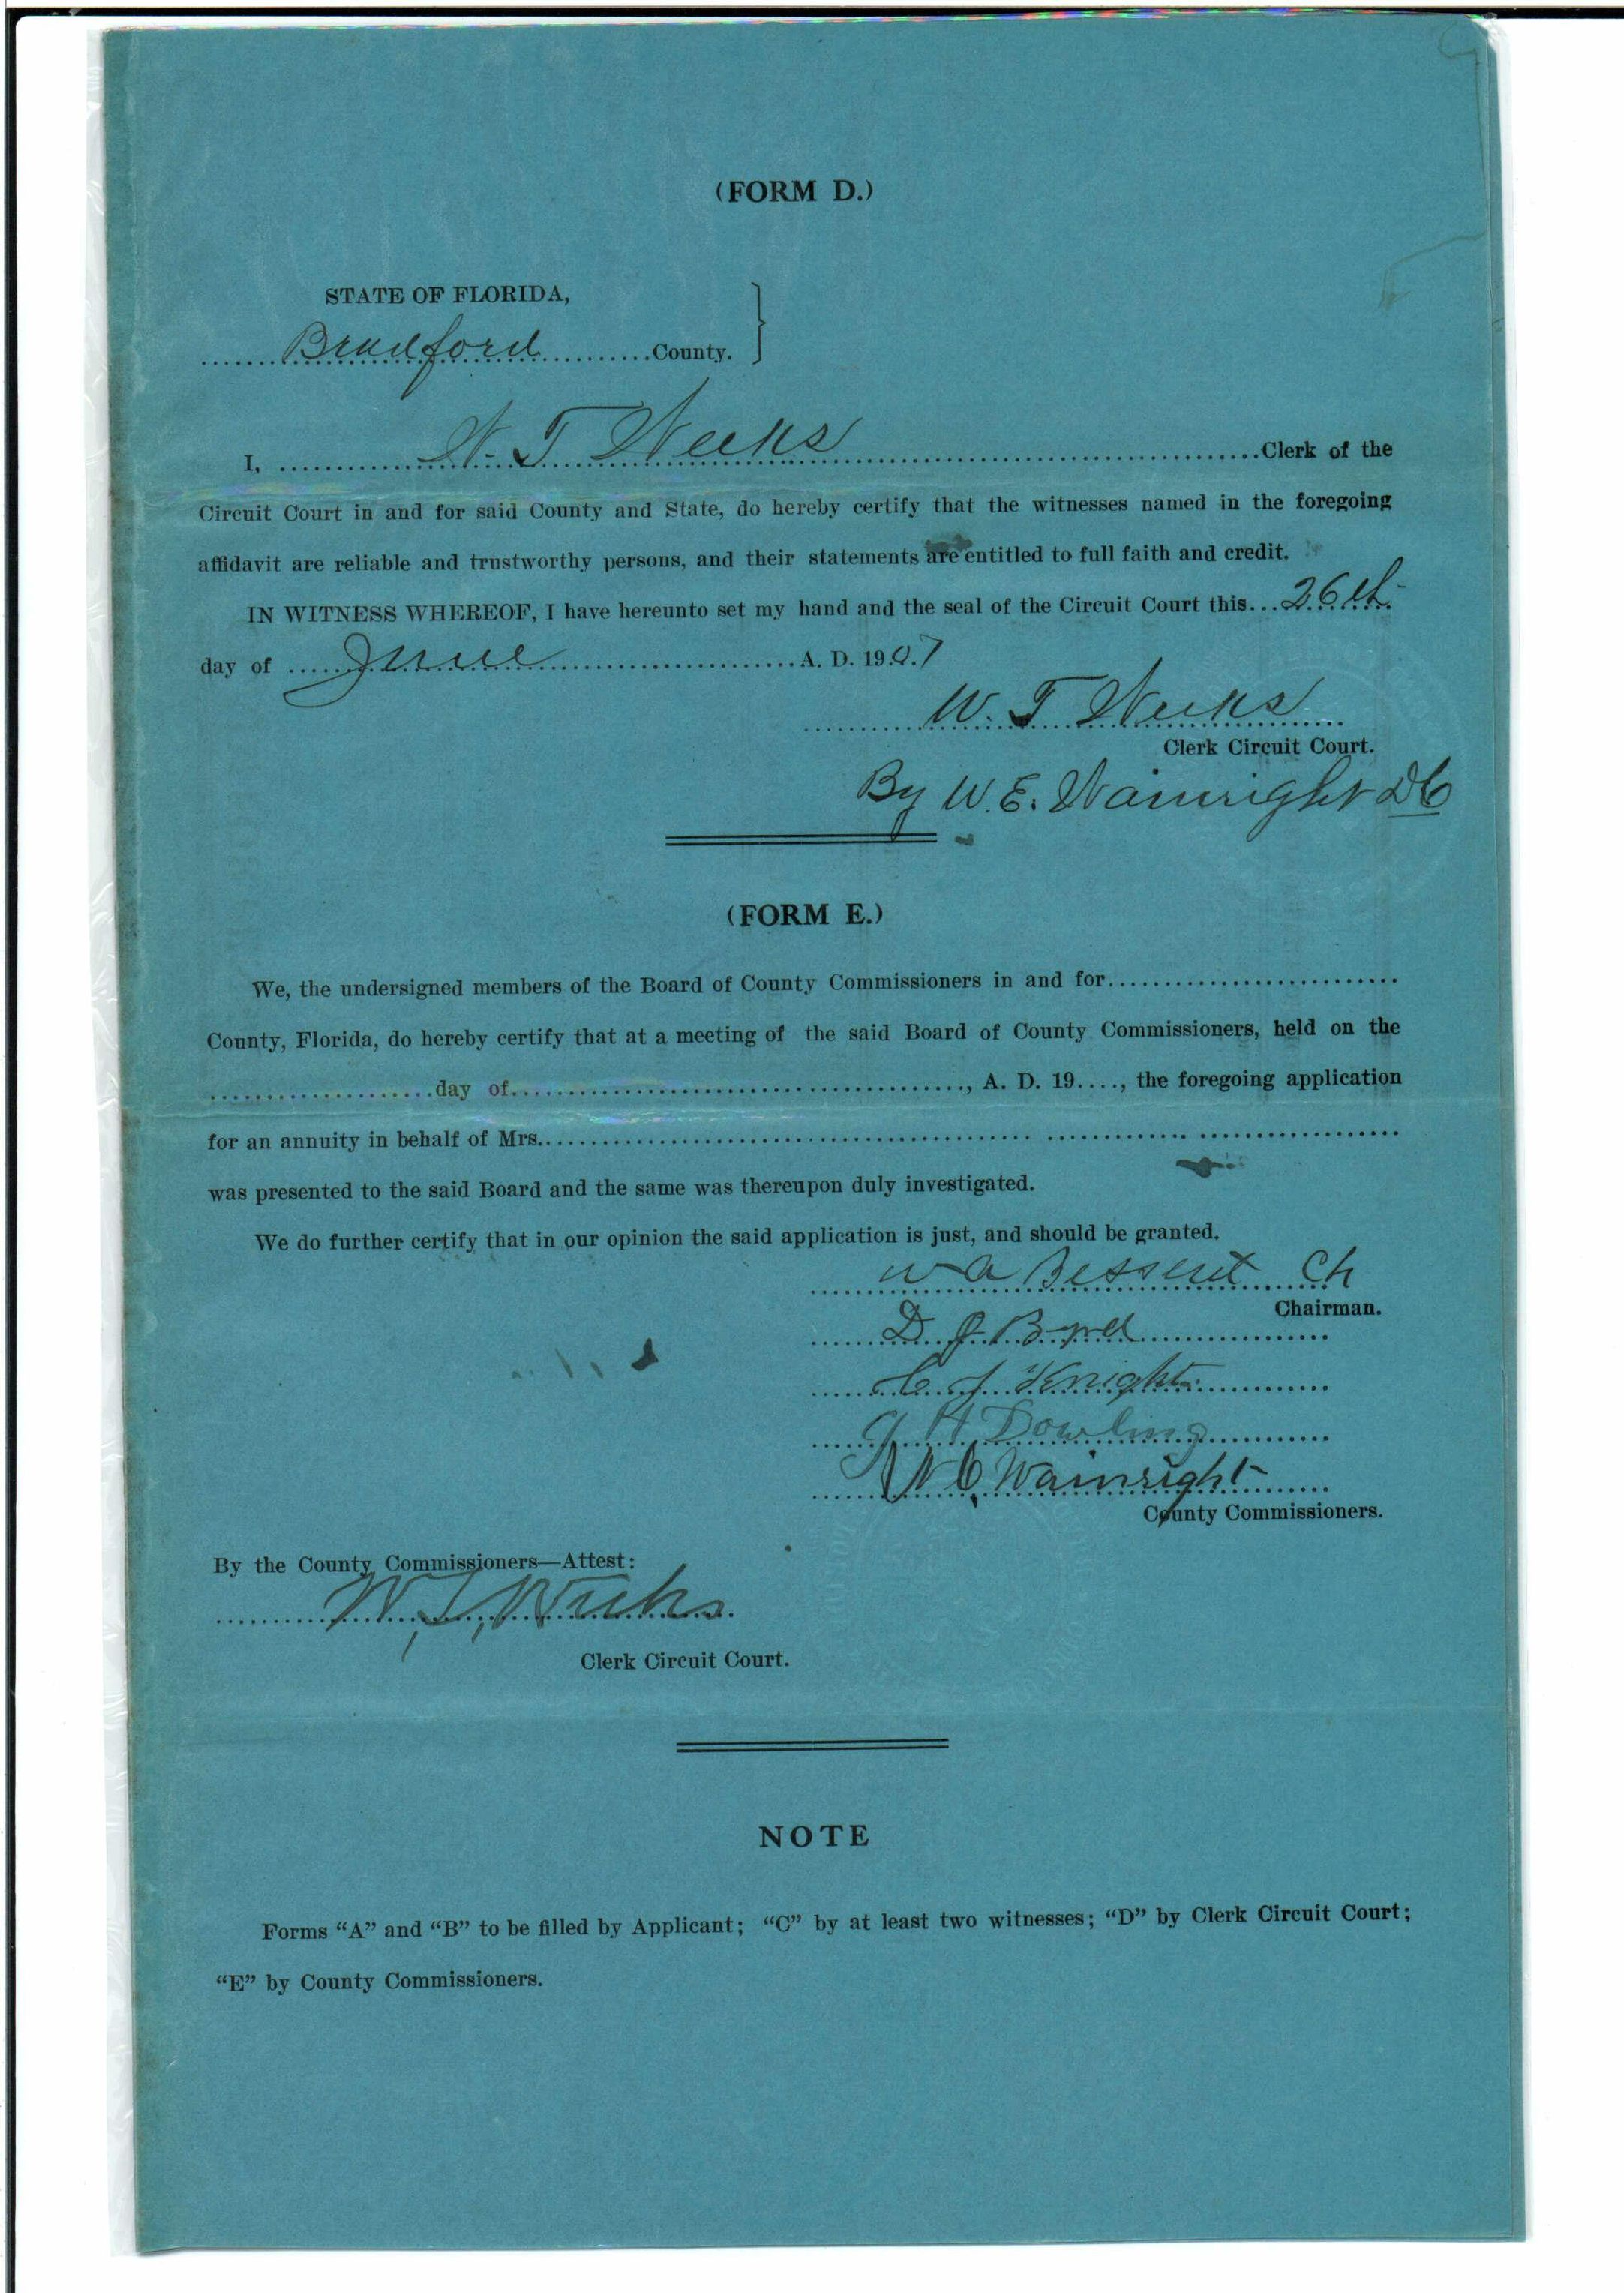 (FORM D.)
STATE OF FLORIDA,
Bradford County.
I, W. T. Weeks Clerk of the
Circuit Court in and for said County and State, do hereby certify that the witnesses named in the foregoing
affidavit are reliable and trustworthy persons, and their statements are entitled to full faith and credit.
IN WITNESS WHEREOF, I have hereunto set my hand and the seal of the Circuit Court this 26th
day of June A. D. 1907
W. T. Weeks
Clerk Circuit Court.
By W. E. Wainright DC
(FORM E.)
We, the undersigned members of the Board of County Commissioners in and for
County, Florida, do hereby certify that at a meeting of the said Board of County Commissioners, held on the
day of, A. D. 19...., the foregoing application
for an annuity in behalf of Mrs.
was presented to the said Board and the same was thereupon duly investigated.
We do further certify that in our opinion the said application is just, and should be granted.
W A Bessent Ch
Chairman.
D J Byrd
C J Knight
J H Dowling
N C Wainright
County Commissioners.
By the County Commissioners—Attest:
W. T. Weeks
Clerk Circuit Court.
NOTE
Forms “A” and “B” to be filled by Applicant; “C” by at least two witnesses; “D” by Clerk Circuit Court;
“E” by County Commissioners.